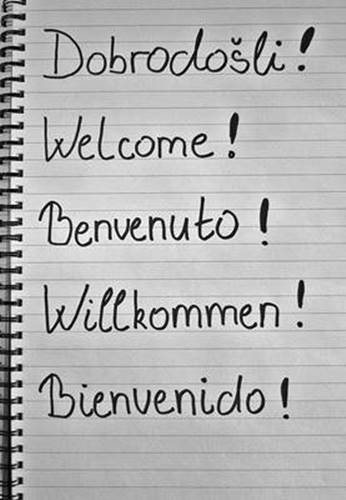 Dobrodošli!
Welcome!
Benvenuto!
Willkommen!
Bienvenido!